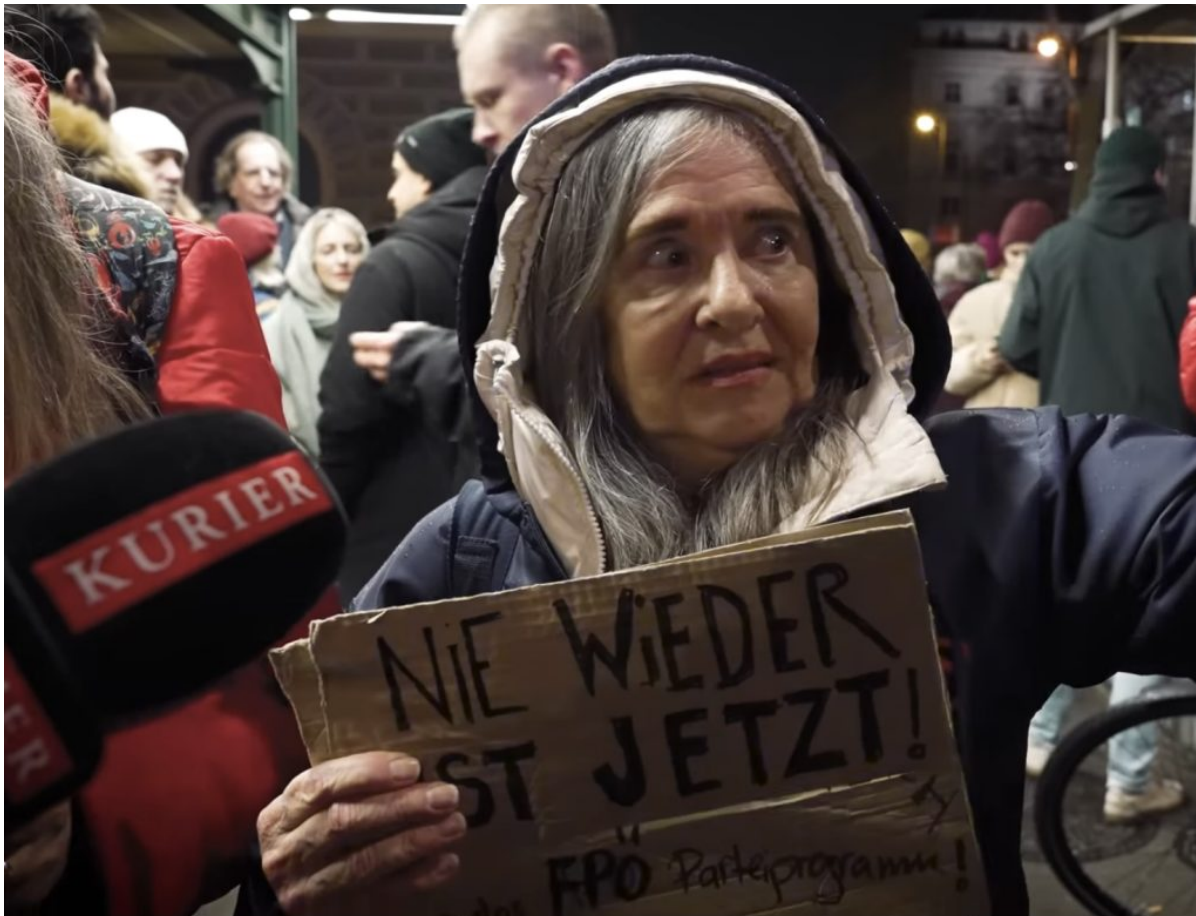 KURIER
ER
NIE WIEDER
IST JETZT!
FPÖ Parteiprogramm!